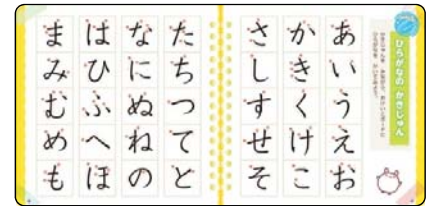 ひらがなの かきじゅん
あいうえお
かきくけこ
さしすせそ
たちつてと
なにぬねの
はひふへほ
まみむめも